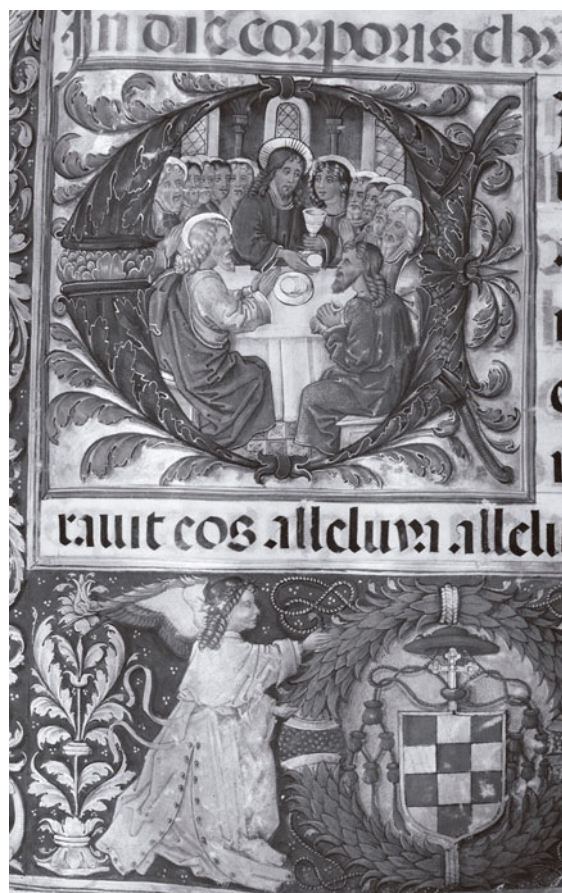 In die corporis chr
rauit eos alleluya allelu